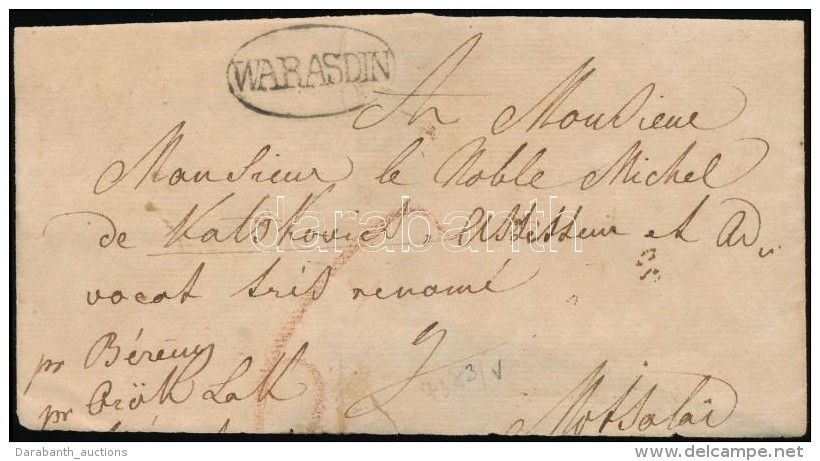 WARASDIN
A Monsieur
Monsieur le Noble Michel
de Katskovics, Assesseur et Ad
vocat tris renomé
pr Bérény
pr Örök Lak
Motsolai
darabanth
Darabanth_auctions
delcampe.net